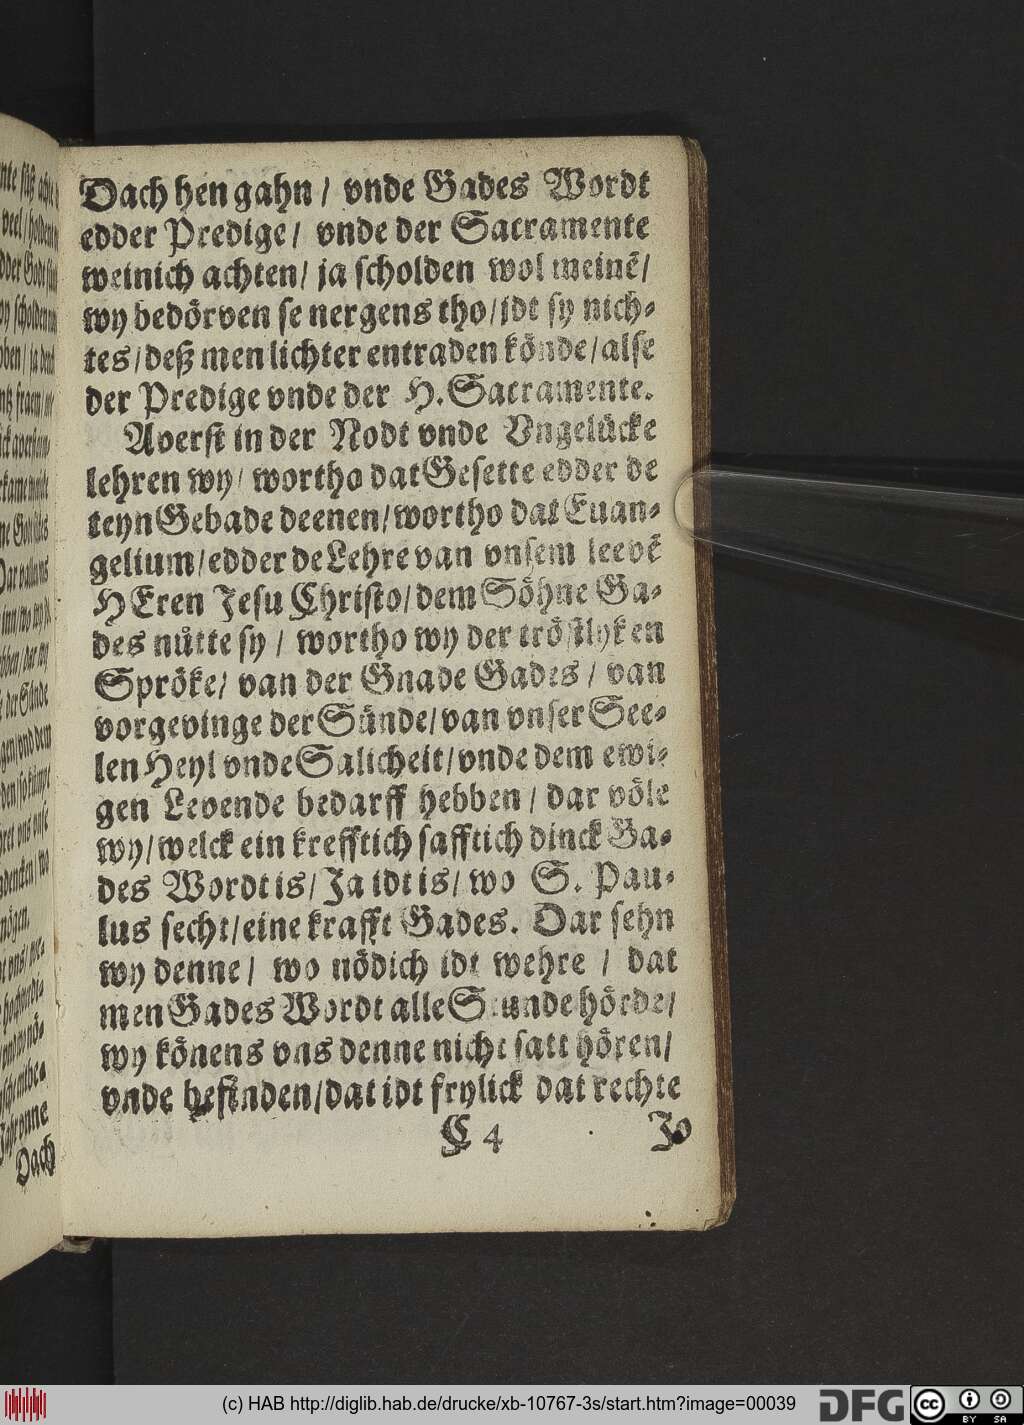 Dach hen gahn / vnde Gades Wordt
edder Predige / vnde der Sacramente
weinich achten / ja scholden wol meinē /
wy bedörven se nergens tho / idt sy nich-
tes / deß men lichter entraden könde / alse
der Predige vnde der H. Sacramente.
Averst in der Nodt vnde Vngelücke
lehren wy / wortho dat Gesette edder de
teyn Gebade deenen / wortho dat Euan-
gelium / edder de Lehre van vnsem leevē
HEren Jesu Christo / dem Söhne Ga-
des nütte sy / wortho wy der tröstlyken
Spröke / van der Gnade Gades / van
vorgevinge der Sünde / van vnser See-
len Heyl vnde Salicheit / vnde dem ewi-
gen Levende bedarff hebben / dar völe
wy / welck ein krefftich safftich dinck Ga-
des Wordt is / Ja idt is / wo S. Pau-
lus secht / eine krafft Gades. Dar sehn
wy denne / wo nödich idt wehre / dat
men Gades Wordt alle Stunde hörde /
wy könens vns denne nicht satt hören /
vnde befinden / dat idt frylick dat rechte
C 4
Jo
Dach
(c) HAB http://diglib.hab.de/drucke/xb-10767-3s/start.htm?image=00039
DFG
cc
BY SA